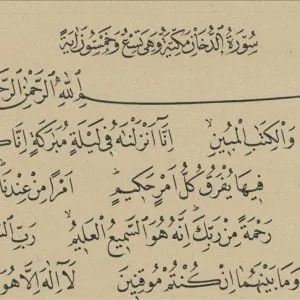 سُورَةُ الدُّخَانِ مَكِّيَّةٌ وَهِىَ تِسْعٌ وَخَمْسُونَ اٰيَةً
ـمِ اللّٰهِ الرَّحْمٰنِ الرَّ
وَالْكِتَابِ الْمُبِينِ اِنَّا اَنْزَلْنَاهُ فِى لَيْلَةٍ مُبَارَكَةٍ اِنَّا
فِيهَا يُفْرَقُ كُلُّ اَمْرٍ حَكِيمٍ اَمْرًا مِنْ عِنْدِنَا
رَحْمَةً مِنْ رَبِّكَ اِنَّهُ هُوَ السَّمِيعُ الْعَلِيمُ رَبِّ
وَمَا بَيْنَهُمَا اِنْ كُنْتُمْ مُوقِنِينَ لَا اِلٰهَ اِلَّا هُوَ